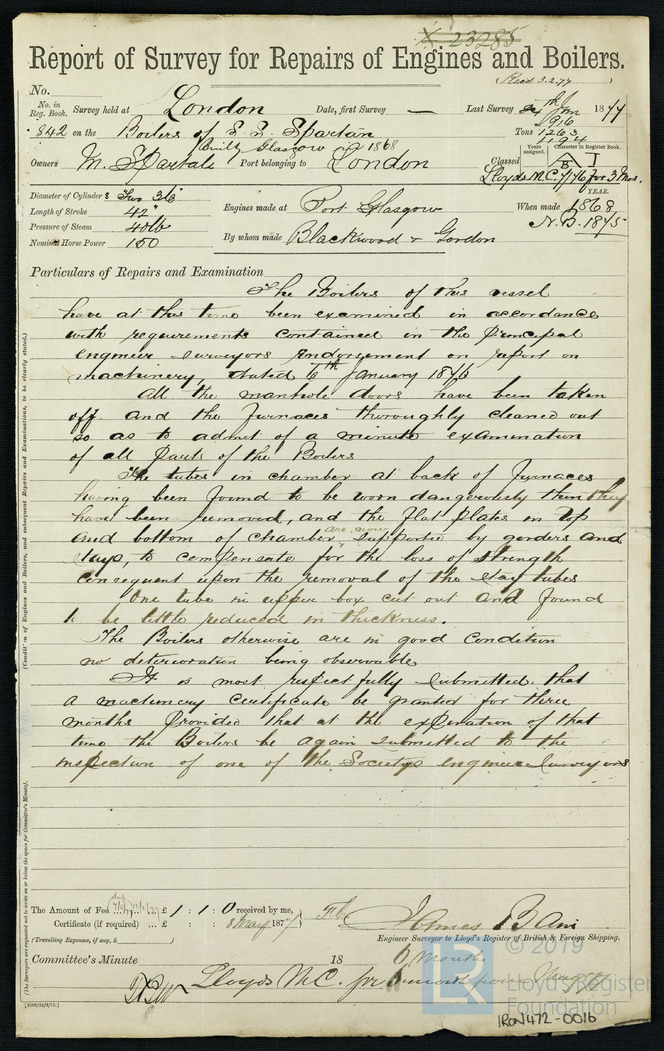 X 23285
Report of Survey for Repairs of Engines and Boilers.
(Recd 3.2.77)
No.
No. in Reg. Book. Survey held at London Date, first Survey — Last Survey 24th Jan 1877
842 on the Boilers of S. S. Spartan Tons 1916 1263 1194
Built Glasgow 1868
Years assigned. Character in Register Book.
Owners M. Spartali Port belonging to London Classed
Lloyds M.C. 1/76 for 3 Mos.
YEAR.
Diameter of Cylinders Two 36
Length of Stroke 42"
Pressure of Steam
Nominal Horse Power 150
Engines made at Port Glasgow When made 1868
N.B. 1875
By whom made Blackwood & Gordon
Particulars of Repairs and Examination
The Boilers of this vessel
have at this time been examined in accordance
with requirements contained in the principal
engineer surveyors endorsement on report on
machinery, dated 6th January 1876
All the manhole doors have been taken
off and the Furnaces thoroughly cleaned out
so as to admit of a minute examination
of all parts of the Boilers
The tubes in chamber at back of furnaces
having been found to be worn dangerously thin they
have been removed, and the flat plates on top
and bottom of chamber are now supported by girders and
stays, to compensate for the loss of strength
consequent upon the removal of the stay tubes
One tube in upper box cut out and found
to be little reduced in thickness.
The Boilers otherwise are in good condition
no deterioration being observable
It is most respectfully submitted that
a machinery certificate be granted for three
months provided that at the expiration of that
time the Boilers be again submitted to the
inspection of one of the Societys engineer surveyors
The amount of Fee £ 1 : 1 : 0 received by me,
Certificate (if required) ... £ : : 8 May 1877
(Travelling Expenses, if any, £ )
James Bain
Engineer Surveyor to Lloyd's Register of British & Foreign Shipping.
Committee's Minute 18
6 months
Lloyds M.C. for 6 months from
[1000/23/9/75.]
(Condition of Engines and Boilers, and subsequent Repairs and Examinations, to be clearly stated.)
(The Surveyors are requested not to write on or below the space for Committee's Minute).
© 2019
LR
Lloyd's Register
Foundation
IRON472-0016